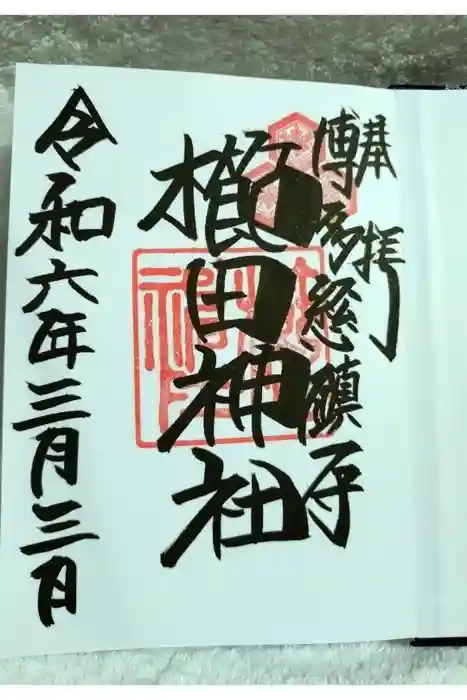 奉拝
博多総鎮守
櫛田神社
令和六年三月三日